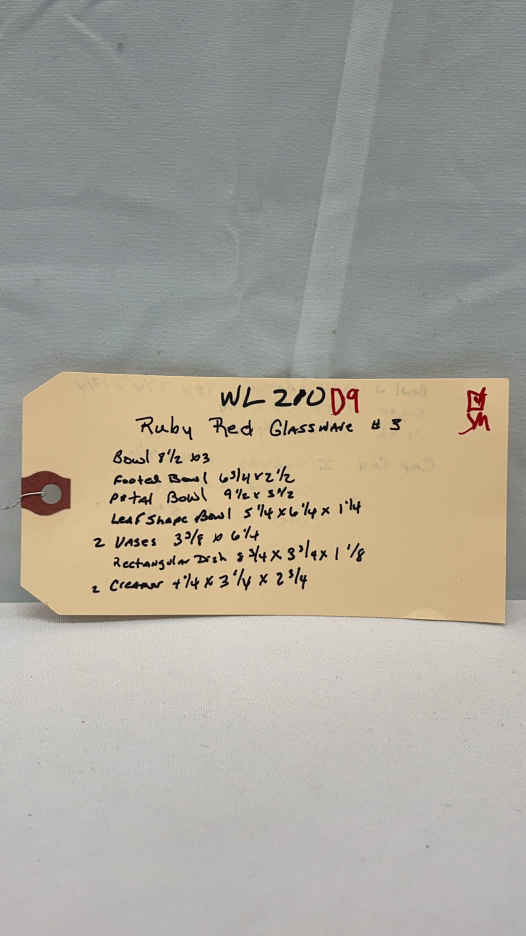 WL 280 D9
Ruby Red Glassware # 3
Bowl 8 1/2 x 3
Footed Bowl 6 3/4 x 2 1/2
Petal Bowl 9 1/2 x 3 1/2
Leaf Shape Bowl 5 1/4 x 6 1/4 x 1 1/4
2 Vases 3 3/8 x 6 1/4
Rectangular Dish 8 3/4 x 3 3/4 x 1 1/8
2 Creamer 4 1/4 x 3 1/4 x 2 3/4